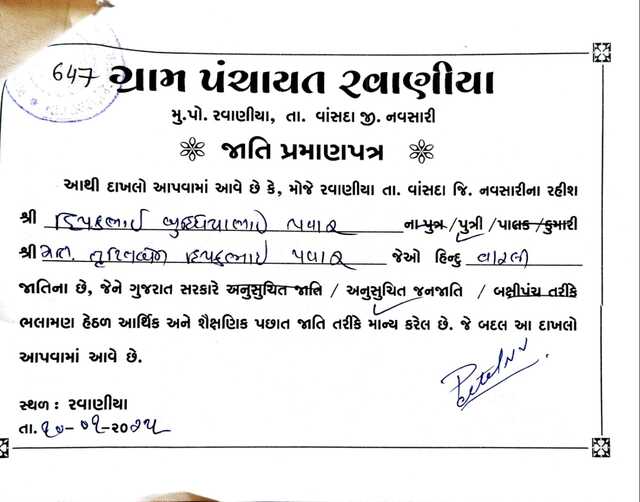 647 ગ્રામ પંચાયત રવાણીયા
મુ.પો. રવાણીયા, તા. વાંસદા જી. નવસારી
જાતિ પ્રમાણપત્ર
આથી દાખલો આપવામાં આવે છે કે, મોજે રવાણીયા તા. વાંસદા જિ. નવસારીના રહીશ
શ્રી દિપકભાઈ પવાર ના પુત્ર /પુત્રી /પાલક /કુમારી
શ્રી દિપકભાઈ પવાર જેઓ હિન્દુ વારલી
જાતિના છે, જેને ગુજરાત સરકારે અનુસુચિત જાતિ / અનુસુચિત જનજાતિ / બક્ષીપંચ તરીકે
ભલામણ હેઠળ આર્થિક અને શૈક્ષણિક પછાત જાતિ તરીકે માન્ય કરેલ છે. જે બદલ આ દાખલો
આપવામાં આવે છે.
સ્થળ : રવાણીયા
તા.